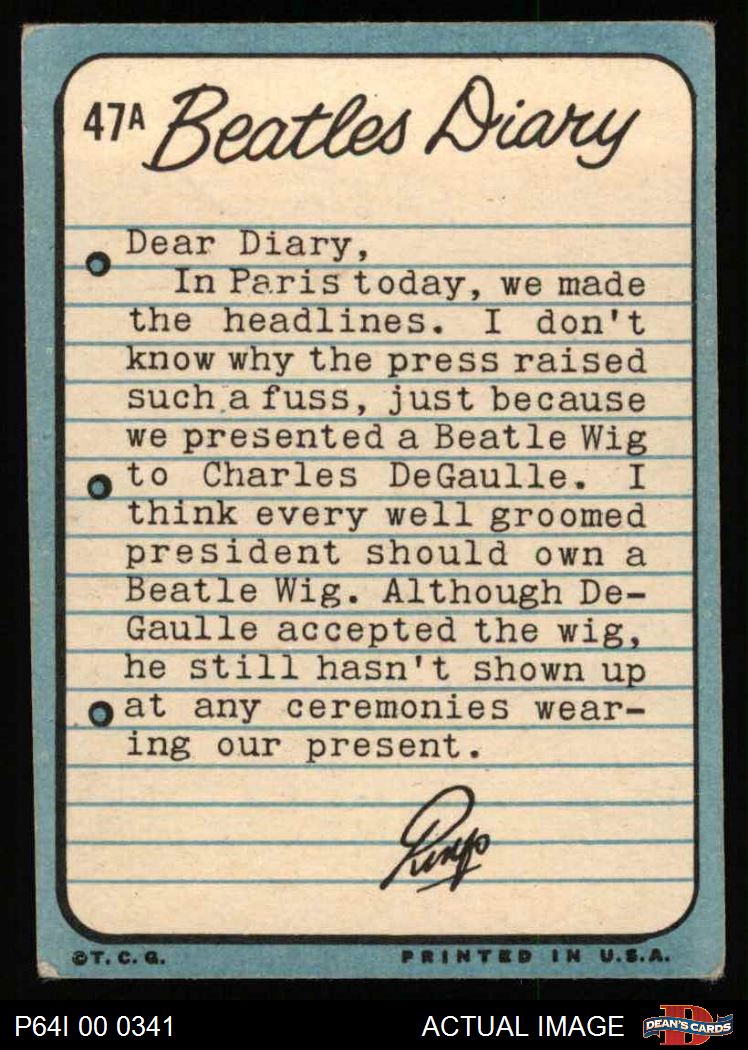 47A Beatles Diary
Dear Diary,
In Paris today, we made
the headlines. I don't
know why the press raised
such a fuss, just because
we presented a Beatle Wig
to Charles DeGaulle. I
think every well groomed
president should own a
Beatle Wig. Although De-
Gaulle accepted the wig,
he still hasn't shown up
at any ceremonies wear-
ing our present.
Ringo
©T.C.G. PRINTED IN U.S.A.
P64I 00 0341 ACTUAL IMAGE D DEAN'S CARDS